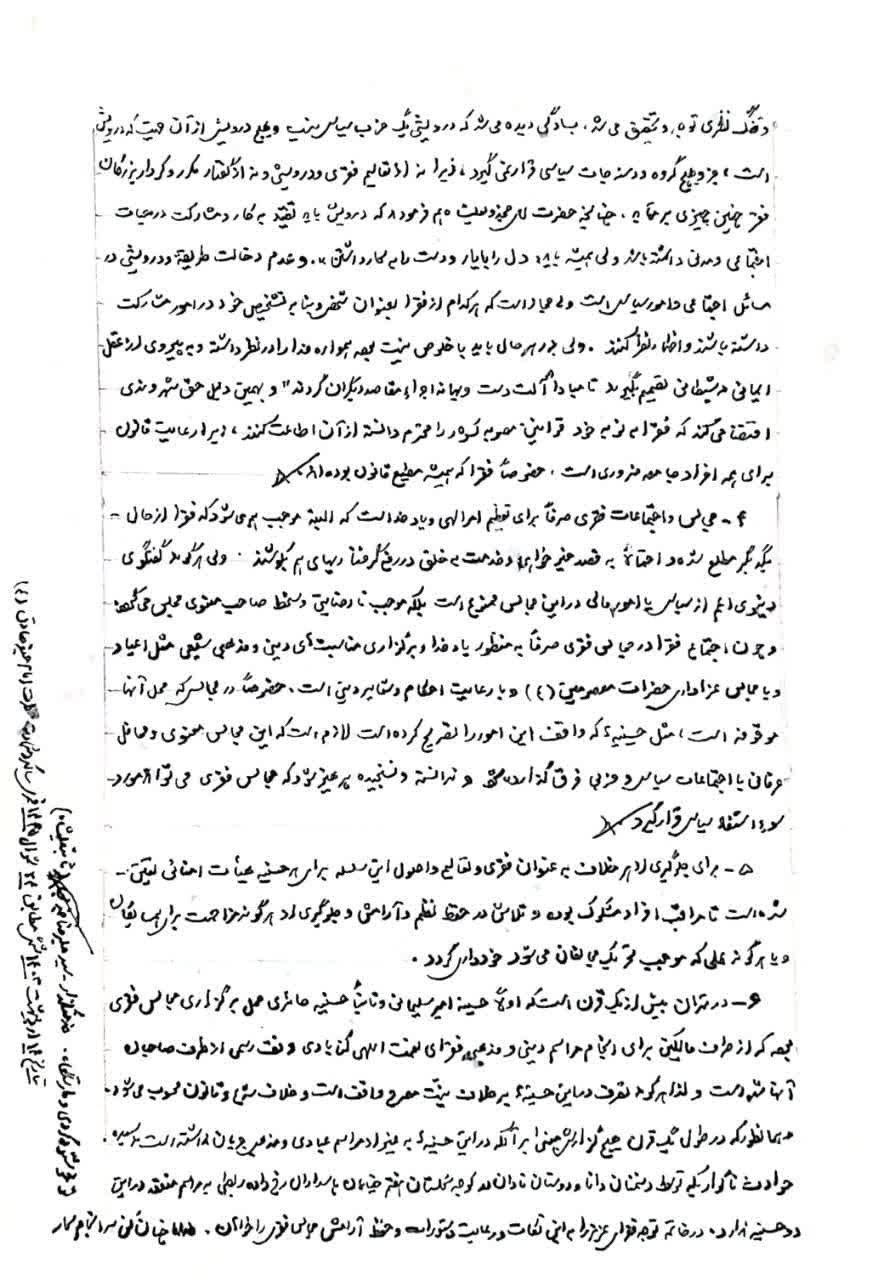 و تفنگ نظری توجه و تحقیق می شد، بسادگی دیده می شد که درویشی یک حزب سیاسی نیست و هیچ درویش از آن حیث که درویش
است، جزو هیچ گروه و دسته جات سیاسی قرار نمی گیرد، زیرا نه از تعالیم فقری و درویشی و نه از گفتار مکرر و کردار بزرگان
فقر چنین چیزی بر میآید، چنانچه حضرت آقای مجذوبعلیشاه هم فرمودند که درویش باید تقید به کار و مشارکت در حیات
اجتماعی و مدنی داشته باشد ولی همیشه باید: دل را با یار و دست را به کار داشتن». و عدم دخالت طریقهٔ درویشی در
مسائل اجتماعی و امور سیاسی است ولی مجاز است که هر کدام از فقرا بعنوان شخص و بنا به تشخیص خود در امور مشارکت
داشته باشند و اظهار نظر کنند. ولی در هر حال باید با خلوص نیت همه همواره خدا را در نظر داشته و به پیروی از عقل
ایمانی نه شیطانی تصمیم بگیرند تا مبادا "آلت دست و بهانه اجراء مقاصد دیگران گردند" و بهمین دلیل حق شهروندی
اقتضا می کند که فقرا به نوبه خود قوانین مصوبه کشور را محترم دانسته از آن اطاعت کنند، زیرا رعایت قانون
برای همه افراد جامعه ضروری است، خصوصاً فقرا که همیشه مطیع قانون بوده اند.
۴- مجالس و اجتماعات فقری صرفاً برای تعظیم امر الهی و یاد خداست که البته موجب هم می شود که فقرا از حال
یکدیگر مطلع شده و احیاناً به قصد خیر خواهی و خدمت به خلق در رفع گرفتاریهای هم بکوشند. ولی هرگونه گفتگوی
دنیوی اعم از سیاسی یا امور مالی در این مجالس ممنوع است بلکه موجب نارضایتی و سخط صاحب معنوی مجلس می گردد
و چون اجتماع فقرا در مجالس فقری صرفاً به منظور یاد خدا و برگزاری مناسبت های دینی و مذهبی شیعی مثل اعیاد
و یا مجالس عزاداری حضرات معصومین (ع) و با رعایت احکام و شعایر دینی است، خصوصاً در مجالسی که محل آنها
موقوفه است، مثل حسینیه که واقف این امور را تصریح کرده است لازم است که این مجالس معنوی و محافل
عرفانی با اجتماعات سیاسی و حزبی فرق گذارده شود و ندانسته و نسنجیده پرهیز شود که مجالس فقری می تواند مورد
سوء استفاده سیاسی قرار گیرد
۵- برای جلوگیری از هر خلاف به عنوان فقری و تعالیم و اصول این سلسله برای هر حسینیه هیأت امنائی تعیین
شده است تا مراقب افراد مشکوک بوده و تلاش در حفظ نظم و آرامش و جلوگیری از هرگونه مزاحمت برای همسایگان
و یا هرگونه عملی که موجب تحریک مخالفان می شود خودداری گردد.
۶- در تهران بیش از یک قرن است که اولاً حسینیه امیر سلیمانی و ثانیاً حسینیه حائری محل برگزاری مجالس فقری
بوده که از طرف مالکین برای انجام مراسم دینی و مذهبی فقرای نعمت اللهی گنابادی وقف رسمی از طرف صاحبان
آنها شده است و لذا هرگونه تصرف در این حسینیه ها بر خلاف نیت مصرح واقف است و خلاف شرع و قانون محسوب می شود.
همانطور که در طول یک قرن هیچ گزارش مبنی بر آنکه در این حسینیه ها به غیر از مراسم عبادی و مذهبی جریان داشته است نرسیده.
حوادث ناگواریکه توسط دشمنان دانا و دوستان نادان در کوچه گلستان هفتم خیابان پاسداران رخ داده ربطی به مراسم منعقده در این
دو حسینیه ندارد. در خاتمه توجه فقرای عزیز را به این نکات و رعایت دستورات و حفظ آرامش مجالس فقری را خواهانم. خدایا چنان کن سرانجام کار
تو خوشنود گردی و ما رستگار. خدمتگزار - سید علیرضا جذبی (ثابتعلیشاه)
بتاریخ ۱۴ اردیبهشت ۱۴۰۳ شمسی مطابق ۲۴ شوال ۱۴۴۵ قمری سالگرد شهادت حضرت امام جعفر صادق (ع)